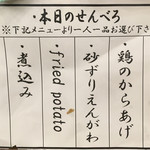 ・本日のせんべろ
※下記メニューより一人一品お選び下さ
・鶏のからあげ
・砂ずりえんがわ
・fried potato
・煮込み